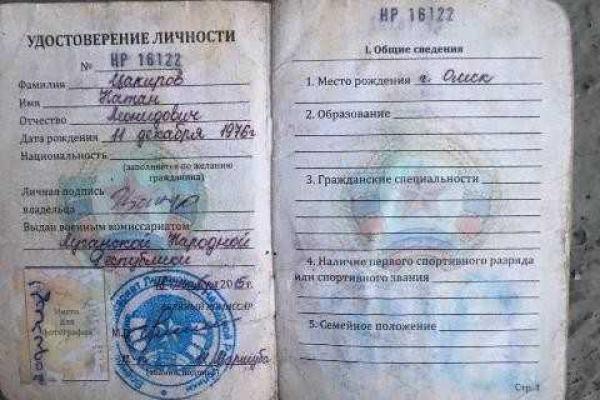 УДОСТОВЕРЕНИЕ ЛИЧНОСТИ
№ НР 16122
Фамилия Цакиров
Имя Натан
Отчество Леонидович
Дата рождения 11 декабря 1976г
Национальность
(заполняется по желанию
гражданина)
Личная подпись
владельца
Выдан военным комиссариатом
Луганской Народной
Республики
2015г.
ВОЕННЫЙ КОМИССАР
Место
для
фотографии
М.П.
НР 16122
I. Общие сведения
1. Место рождения г. Омск
2. Образование
3. Гражданские специальности
4. Наличие первого спортивного разряда
или спортивного звания
5. Семейное положение
Стр. 1